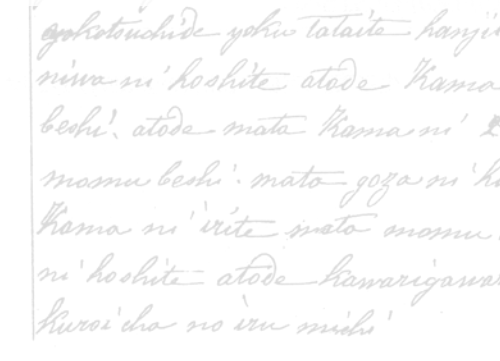 yoku tataite
niwa ni hoshite atode Kama
beshi. atode mata Kama ni
momu beshi. mata goza ni
Kama ni irite mata momu
ni hoshite atode
kuroi cha no iru michi